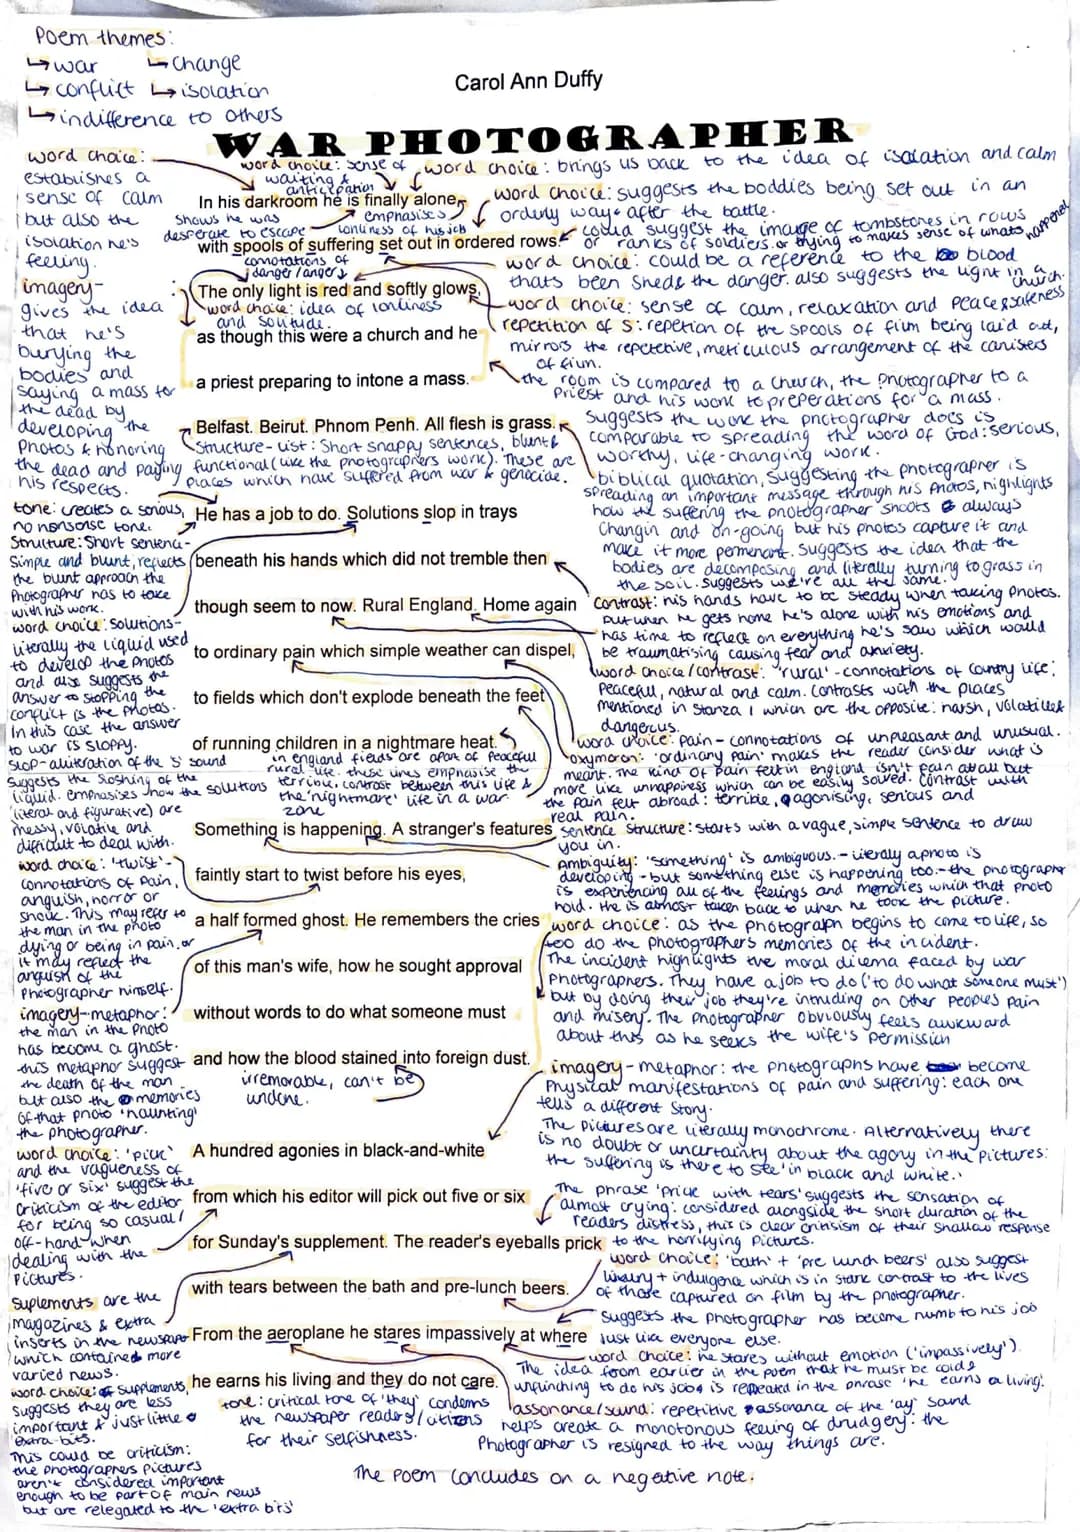 Poem themes:
↳ war ↳ change
↳ conflict ↳ isolation
↳ indifference to others
Carol Ann Duffy
WAR PHOTOGRAPHER
word choice:
establishes a
sense of calm
but also the
isolation he's
feeling.
word choice: sense of
waiting &
anticipation
word choice: brings us back to the idea of isolation and calm
In his darkroom he is finally alone
shows he was
desperate to escape
emphasises
lonliness of his job
word choice: suggests the boddies being set out in an
orderly way after the battle.
could suggest the image of tombstones in rows
or ranks of soldiers. or trying to makes sense of whats happened
with spools of suffering set out in ordered rows.
connotations of
danger/anger
word choice: could be a reference to the blood
thats been shed & the danger. also suggests the light in a
church.
The only light is red and softly glows,
word choice: idea of lonliness
and solitude.
word choice: sense of calm, relaxation and peace & safeness
imagery-
gives the idea
that he's
burying the
bodies and
saying a mass for
the dead by
developing the
photos & honoring
the dead and paying
his respects.
as though this were a church and he
repetition of s: repetion of the spools of film being laid out,
mirrors the repetetive, meticulous arrangement of the canisters
of film.
a priest preparing to intone a mass.
the room is compared to a church, the photographer to a
priest and his work to preperations for a mass.
Suggests the work the photographer does is
comparable to spreading the word of God: serious,
worthy, life-changing work.
Belfast. Beirut. Phnom Penh. All flesh is grass.
Structure-list: Short snappy sentences, blunt &
functional (like the photographers work). These are
places which have suffered from war & genocide.
biblical quotation, suggesting the photographer is
spreading an important message through his photos, highlights
how the suffering the photographer shoots always
changin and on-going but his photos capture it and
make it more permenant. Suggests the idea that the
bodies are decomposing and literally turning to grass in
the soil. suggests we're all the same.
tone: creates a serious,
no nonsense tone.
Structure: Short sentence-
Simple and blunt, reflects
the blunt approach the
photographer has to take
with his work.
He has a job to do. Solutions slop in trays
beneath his hands which did not tremble then
though seem to now. Rural England. Home again
Contrast: his hands have to be steady when taking photos.
but when he gets home he's alone with his emotions and
has time to reflect on everything he's saw which would
be traumatising causing fear and anxiety.
word choice: solutions-
literally the liquid used
to develop the photos
and also suggests the
answer to stopping the
conflict is the photos.
In this case the answer
to war is sloppy.
slop-aliteration of the 's' sound
suggests the sloshing of the
liquid. emphasises how the solutions
(literal and figurative) are
messy, volatile and
difficult to deal with.
to ordinary pain which simple weather can dispel,
to fields which don't explode beneath the feet
word choice/contrast: 'rural' - connotations of country life:
peaceful, natural and calm. Contrasts with the places
mentioned in Stanza 1 which are the opposite: harsh, volatile &
dangerous.
of running children in a nightmare heat.
in england fields are apart of peaceful
rural life. these lines emphasise the
terrible, contrast between this life &
the 'nightmare' life in a war
zone
word choice: pain - connotations of unpleasant and unusual.
oxymoron: 'ordinary pain' makes the reader consider what is
meant. The kind of pain felt in england isn't pain at all but
more like unhappiness which can be easily solved. Contrast with
the pain felt abroad: terrible, agonising, serious and
real pain.
Something is happening. A stranger's features
Sentence structure: starts with a vague, simple sentence to draw
you in.
Ambiguity: 'something' is ambiguous. - literally a photo is
developing - but something else is happening too. - the photographer
is experiencing all of the feelings and memories which that photo
hold. He is almost taken back to when he took the picture.
word choice: 'twist'-
connotations of pain,
anguish, horror or
shock. This may refer to
the man in the photo
dying or being in pain, or
it may reflect the
anguish of the
photographer himself.
faintly start to twist before his eyes,
a half formed ghost. He remembers the cries
of this man's wife, how he sought approval
without words to do what someone must
and how the blood stained into foreign dust.
word choice: as the photograph begins to come to life, so
too do the photographers memories of the incident.
The incident highlights the moral dilema faced by war
photographers. They have a job to do ('to do what someone must')
but by doing their job they're intruding on other peoples pain
and misery. The photographer obviously feels awkward
about this as he seeks the wife's permission
imagery-metaphor:
the man in the photo
has become a ghost.
this metaphor suggest
the death of the man
but also the memories
of that photo 'haunting'
the photographer.
irremorable, can't be
undone.
imagery - metaphor: the photographs have become
physical manifestations of pain and suffering: each one
tells a different story.
The pictures are literally monochrome. Alternatively there
is no doubt or uncertainty about the agony in the pictures:
the suffering is there to see 'in black and white.'
A hundred agonies in black-and-white
from which his editor will pick out five or six
for Sunday's supplement. The reader's eyeballs prick
with tears between the bath and pre-lunch beers.
word choice: 'pick'
and the vagueness of
'five or six' suggest the
criticism of the editor
for being so casual/
off-hand when
dealing with the
pictures.
The phrase 'prick with tears' suggests the sensation of
almost crying: considered alongside the short duration of the
readers distress, this is clear critisism of their shallow response
to the horrifying pictures.
word choice: 'bath' + 'pre lunch beers' also suggest
luxury + indulgence which is in stark contrast to the lives
of those captured on film by the photographer.
suplements are the
magazines & extra
inserts in the newspaper
which contained more
varied news.
word choice: supplements,
suggests they are less
important & just little
extra bits.
This could be criticism:
the photographers pictures
aren't considered important
enough to be part of main news
but are relegated to the 'extra bits'
From the aeroplane he stares impassively at where
he earns his living and they do not care.
suggests the photographer has become numb to his job
just like everyone else.
word choice: he stares without emotion ('impassively').
The idea from earlier in the poem that he must be cold &
unflinching to do his job is repeated in the phrase 'he earns a living'.
tone: critical tone of 'they' condemns
the newspaper readers/citizens
for their selfishness.
assonance/sound: repetitive assonance of the 'ay' sound
helps create a monotonous feeling of drudgery: the
photographer is resigned to the way things are.
The poem concludes on a negative note.